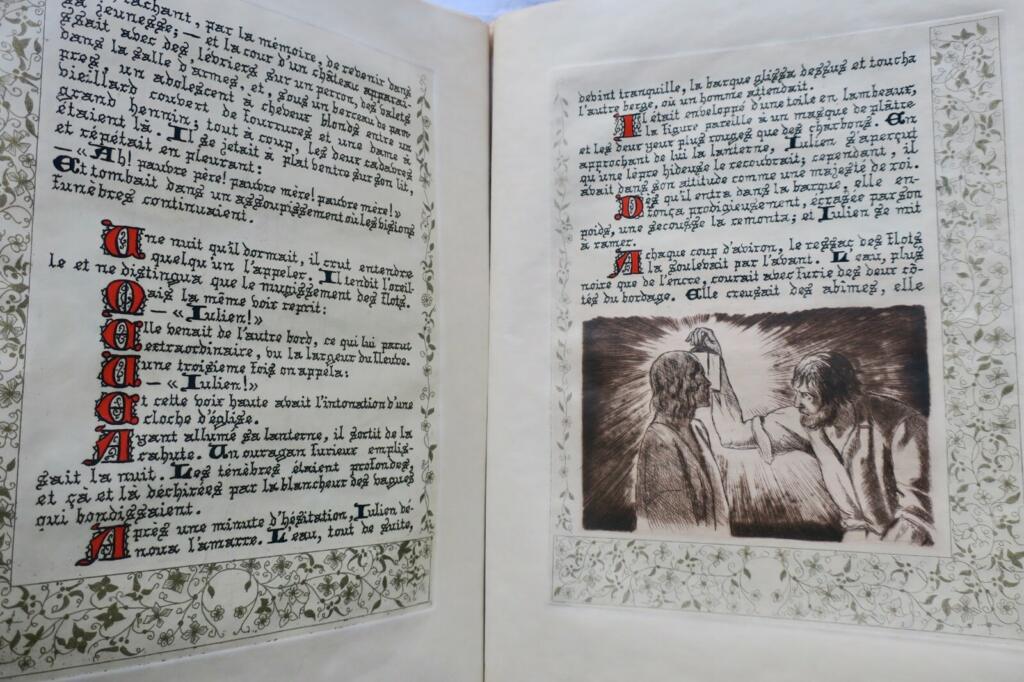 tachant, par la mémoire, de revenir dans
sa jeunesse; — et la cour d'un château apparai-
ssait avec des lévriers sur un perron, des valets
dans la salle d'armes, et, sous un berceau de pam-
pres, un adolescent à cheveux blonds entre un
vieillard couvert de fourrures et une dame à
grand hennin; tout à coup, les deux cadavres
étaient là. Il se jetait à plat ventre sur son lit,
et répétait en pleurant:
— «Ah! pauvre père! pauvre mère! pauvre mère!»
Et tombait dans un assoupissement où les visions
funèbres continuaient.
Une nuit qu'il dormait, il crut entendre
quelqu'un l'appeler. Il tendit l'oreil-
le et ne distingua que le mugissement des flots.
Mais la même voix reprit:
— «Julien!»
Elle venait de l'autre bord, ce qui lui parut
extraordinaire, vu la largeur du fleuve.
Une troisième fois on appela:
— «Julien!»
Et cette voix haute avait l'intonation d'une
cloche d'église.
Ayant allumé sa lanterne, il sortit de la
cahute. Un ouragan furieux emplis-
sait la nuit. Les ténèbres étaient profondes,
et çà et là déchirées par la blancheur des vagues
qui bondissaient.
Après une minute d'hésitation, Julien dé-
noua l'amarre. L'eau, tout de suite,
devint tranquille, la barque glissa dessus et toucha
l'autre berge, où un homme attendait.
Il était enveloppé d'une toile en lambeaux,
la figure pareille à un masque de plâtre
et les deux yeux plus rouges que des charbons. En
approchant de lui la lanterne, Julien s'aperçut
qu'une lèpre hideuse le recouvrait; cependant, il
avait dans son attitude comme une majesté de roi.
Dès qu'il entra dans la barque, elle en-
fonça prodigieusement, écrasée par son
poids, une secousse la remonta; et Julien se mit
à ramer.
A chaque coup d'aviron, le ressac des flots
la soulevait par l'avant. L'eau, plus
noire que de l'encre, courait avec furie des deux cô-
tés du bordage. Elle creusait des abîmes, elle